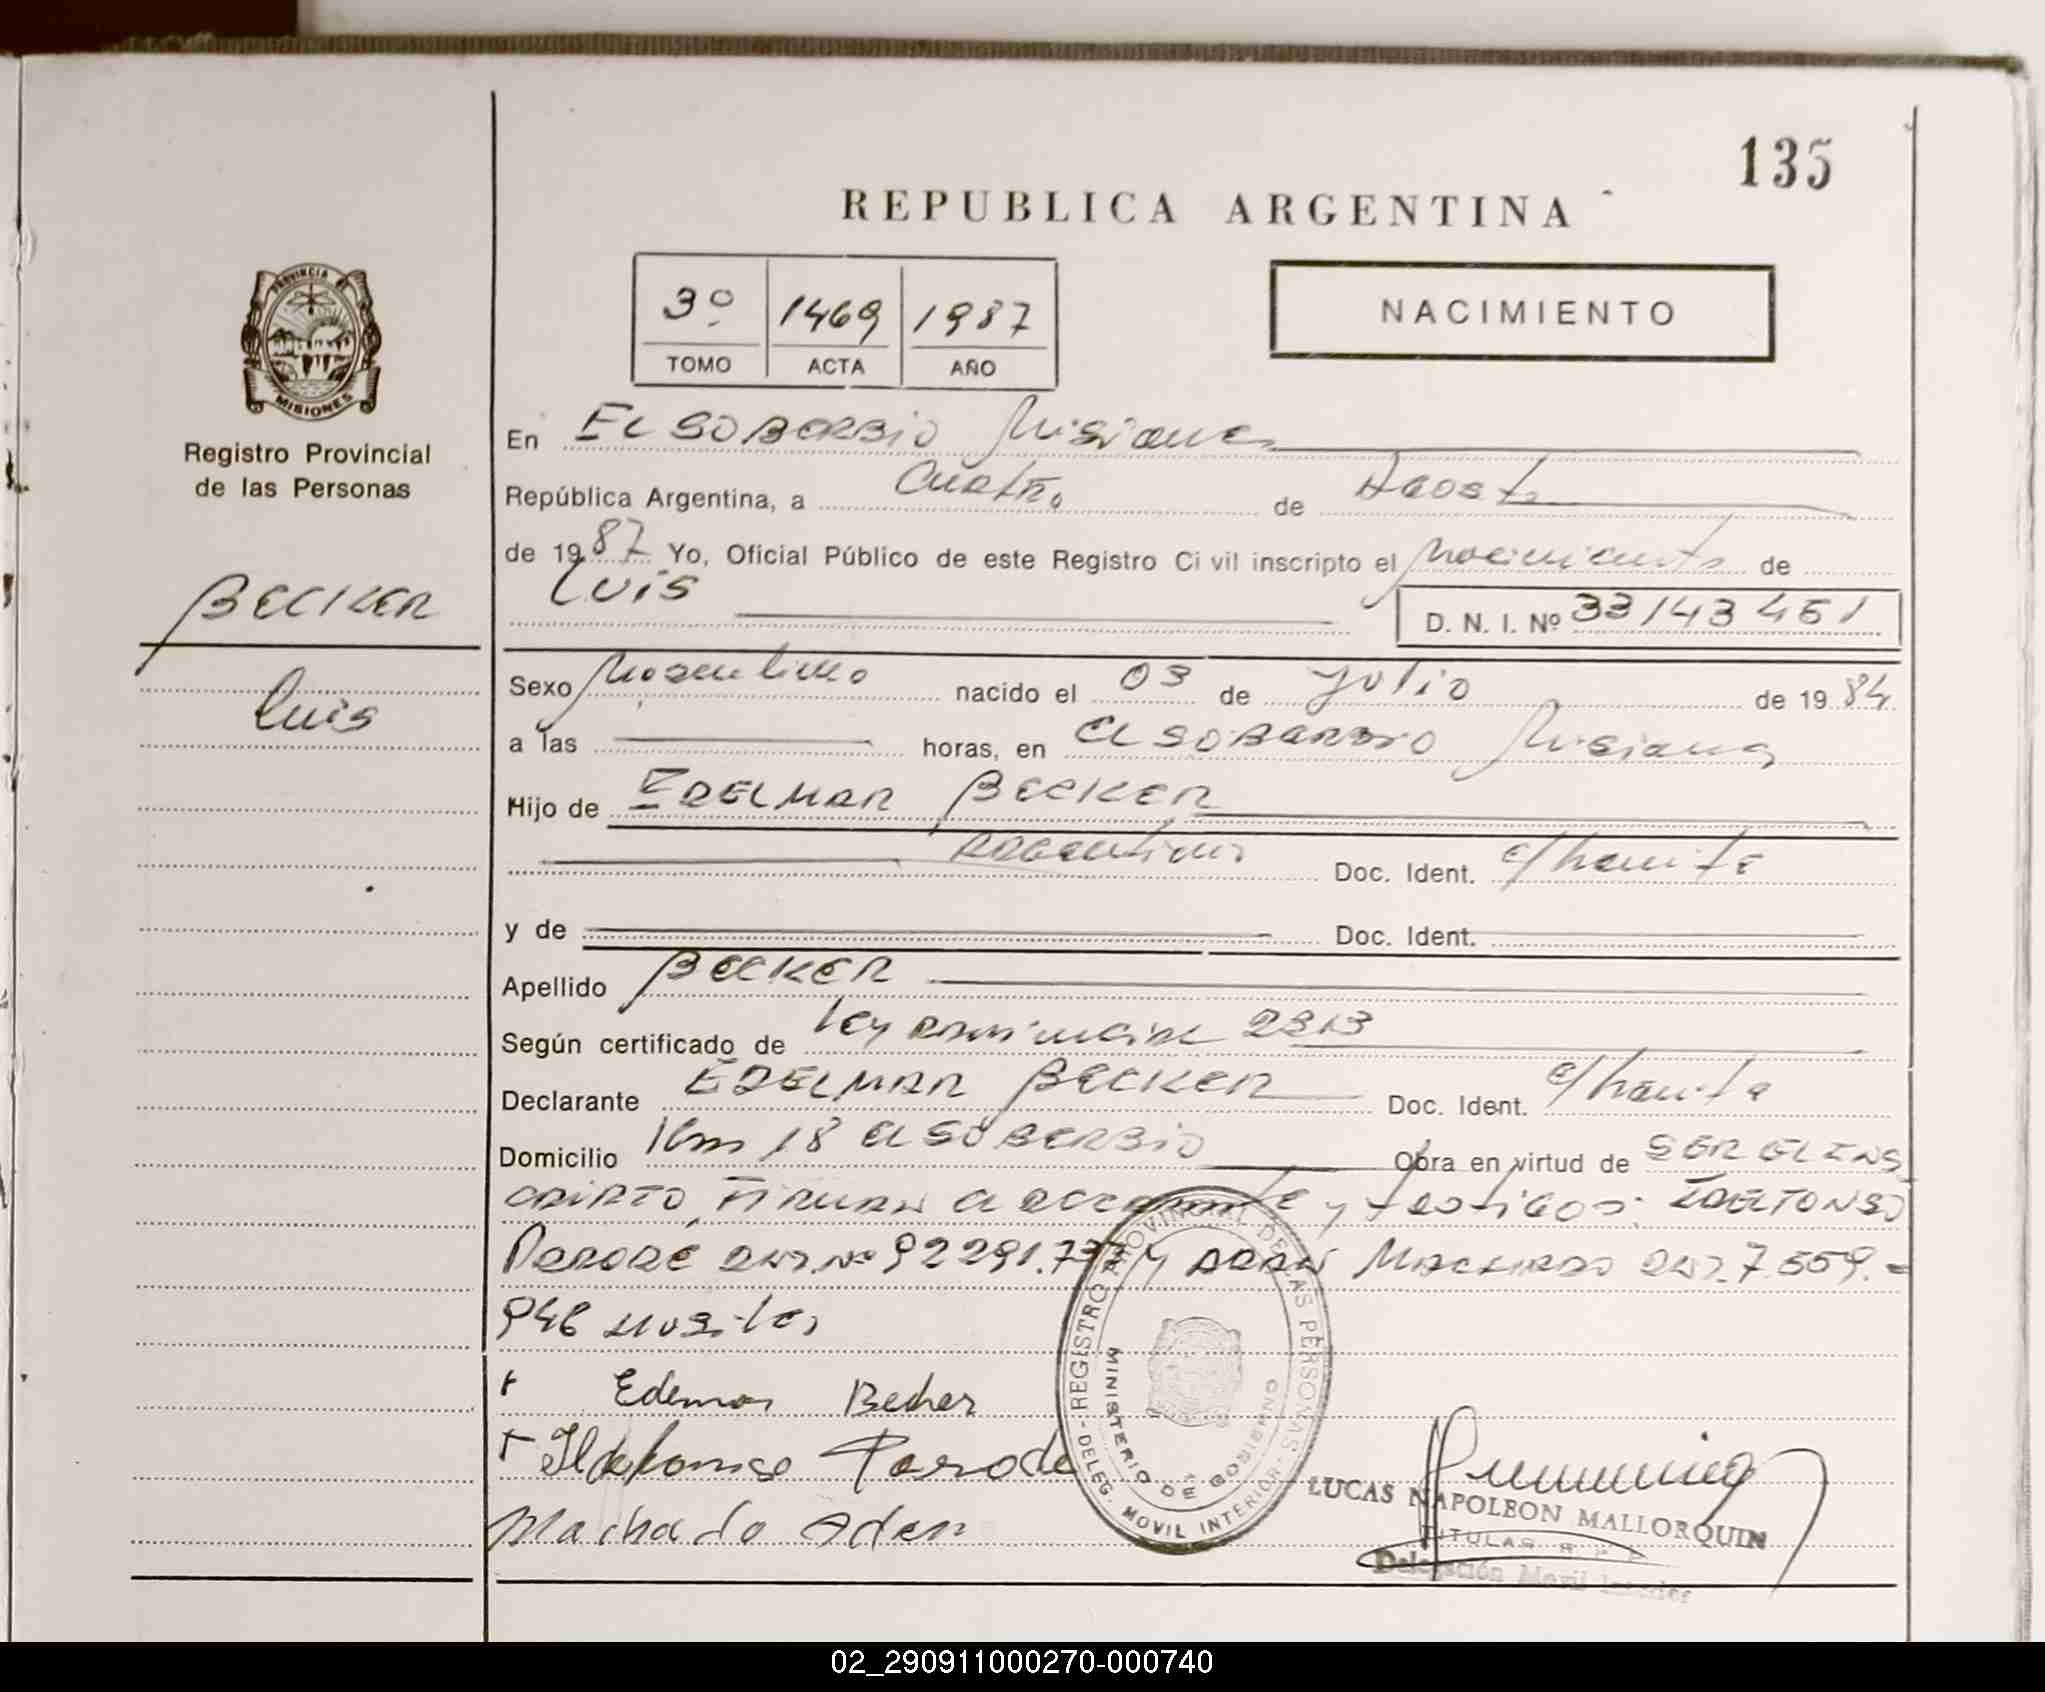 135
REPUBLICA ARGENTINA
3º 1469 1987
TOMO ACTA AÑO
NACIMIENTO
PROVINCIA DE MISIONES
Registro Provincial
de las Personas
BECKER
Luis
En EL SOBERBIO Misiones
República Argentina, a cuatro de Agosto
de 1987 Yo, Oficial Público de este Registro Civil inscripto el Nacimiento de
LUIS D. N. I. Nº 33143451
Sexo Masculino nacido el 03 de Julio de 1984
a las horas, en EL SOBERBIO Misiones
Hijo de EDELMAR BECKER
Argentino Doc. Ident. c/
y de Doc. Ident.
Apellido BECKER
Según certificado de Ley Provincial 2313
Declarante EDELMAR BECKER Doc. Ident. c/
Domicilio Km 18 EL SOBERBIO Obra en virtud de SER EL INS
CRIPTO, FIRMAN y testigos: ILDEFONSO
PARODE DNI. Nº 92291.733 y ADAN MACHADO DNI. 7.559.-
946
Edemar Becker
Ildefonso Parode
Machado Adan
REGISTRO PROVINCIAL DE LAS PERSONAS - DELEG. MOVIL INTERIOR -
MINISTERIO DE GOBIERNO
LUCAS NAPOLEON MALLORQUIN
TITULAR
Delegación Movil Interior
02_290911000270-000740